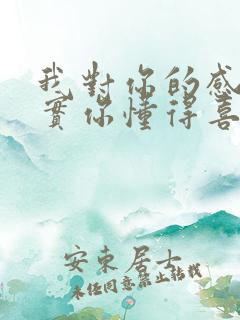 我對你的感
實你懂得喜
安東居士
未任同意禁止轉載